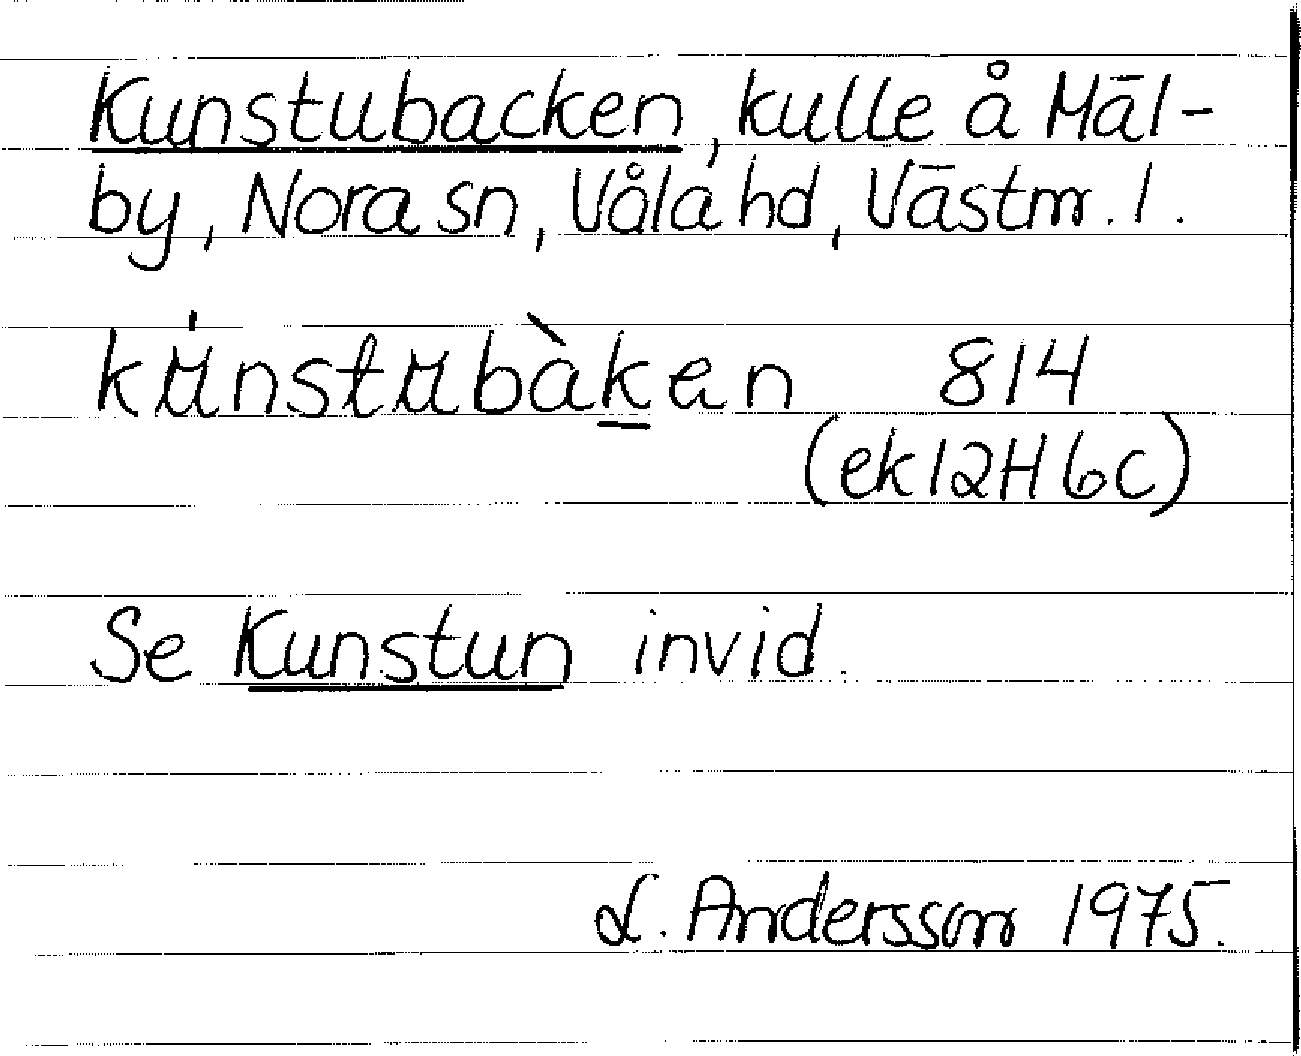 Kunstubacken, kulle å Mäl-
by, Nora sn, Våla hd, Västm. l.
kúnstubàken 814
(ek 12H 6c)
Se Kunstun invid.
L. Andersson 1975.